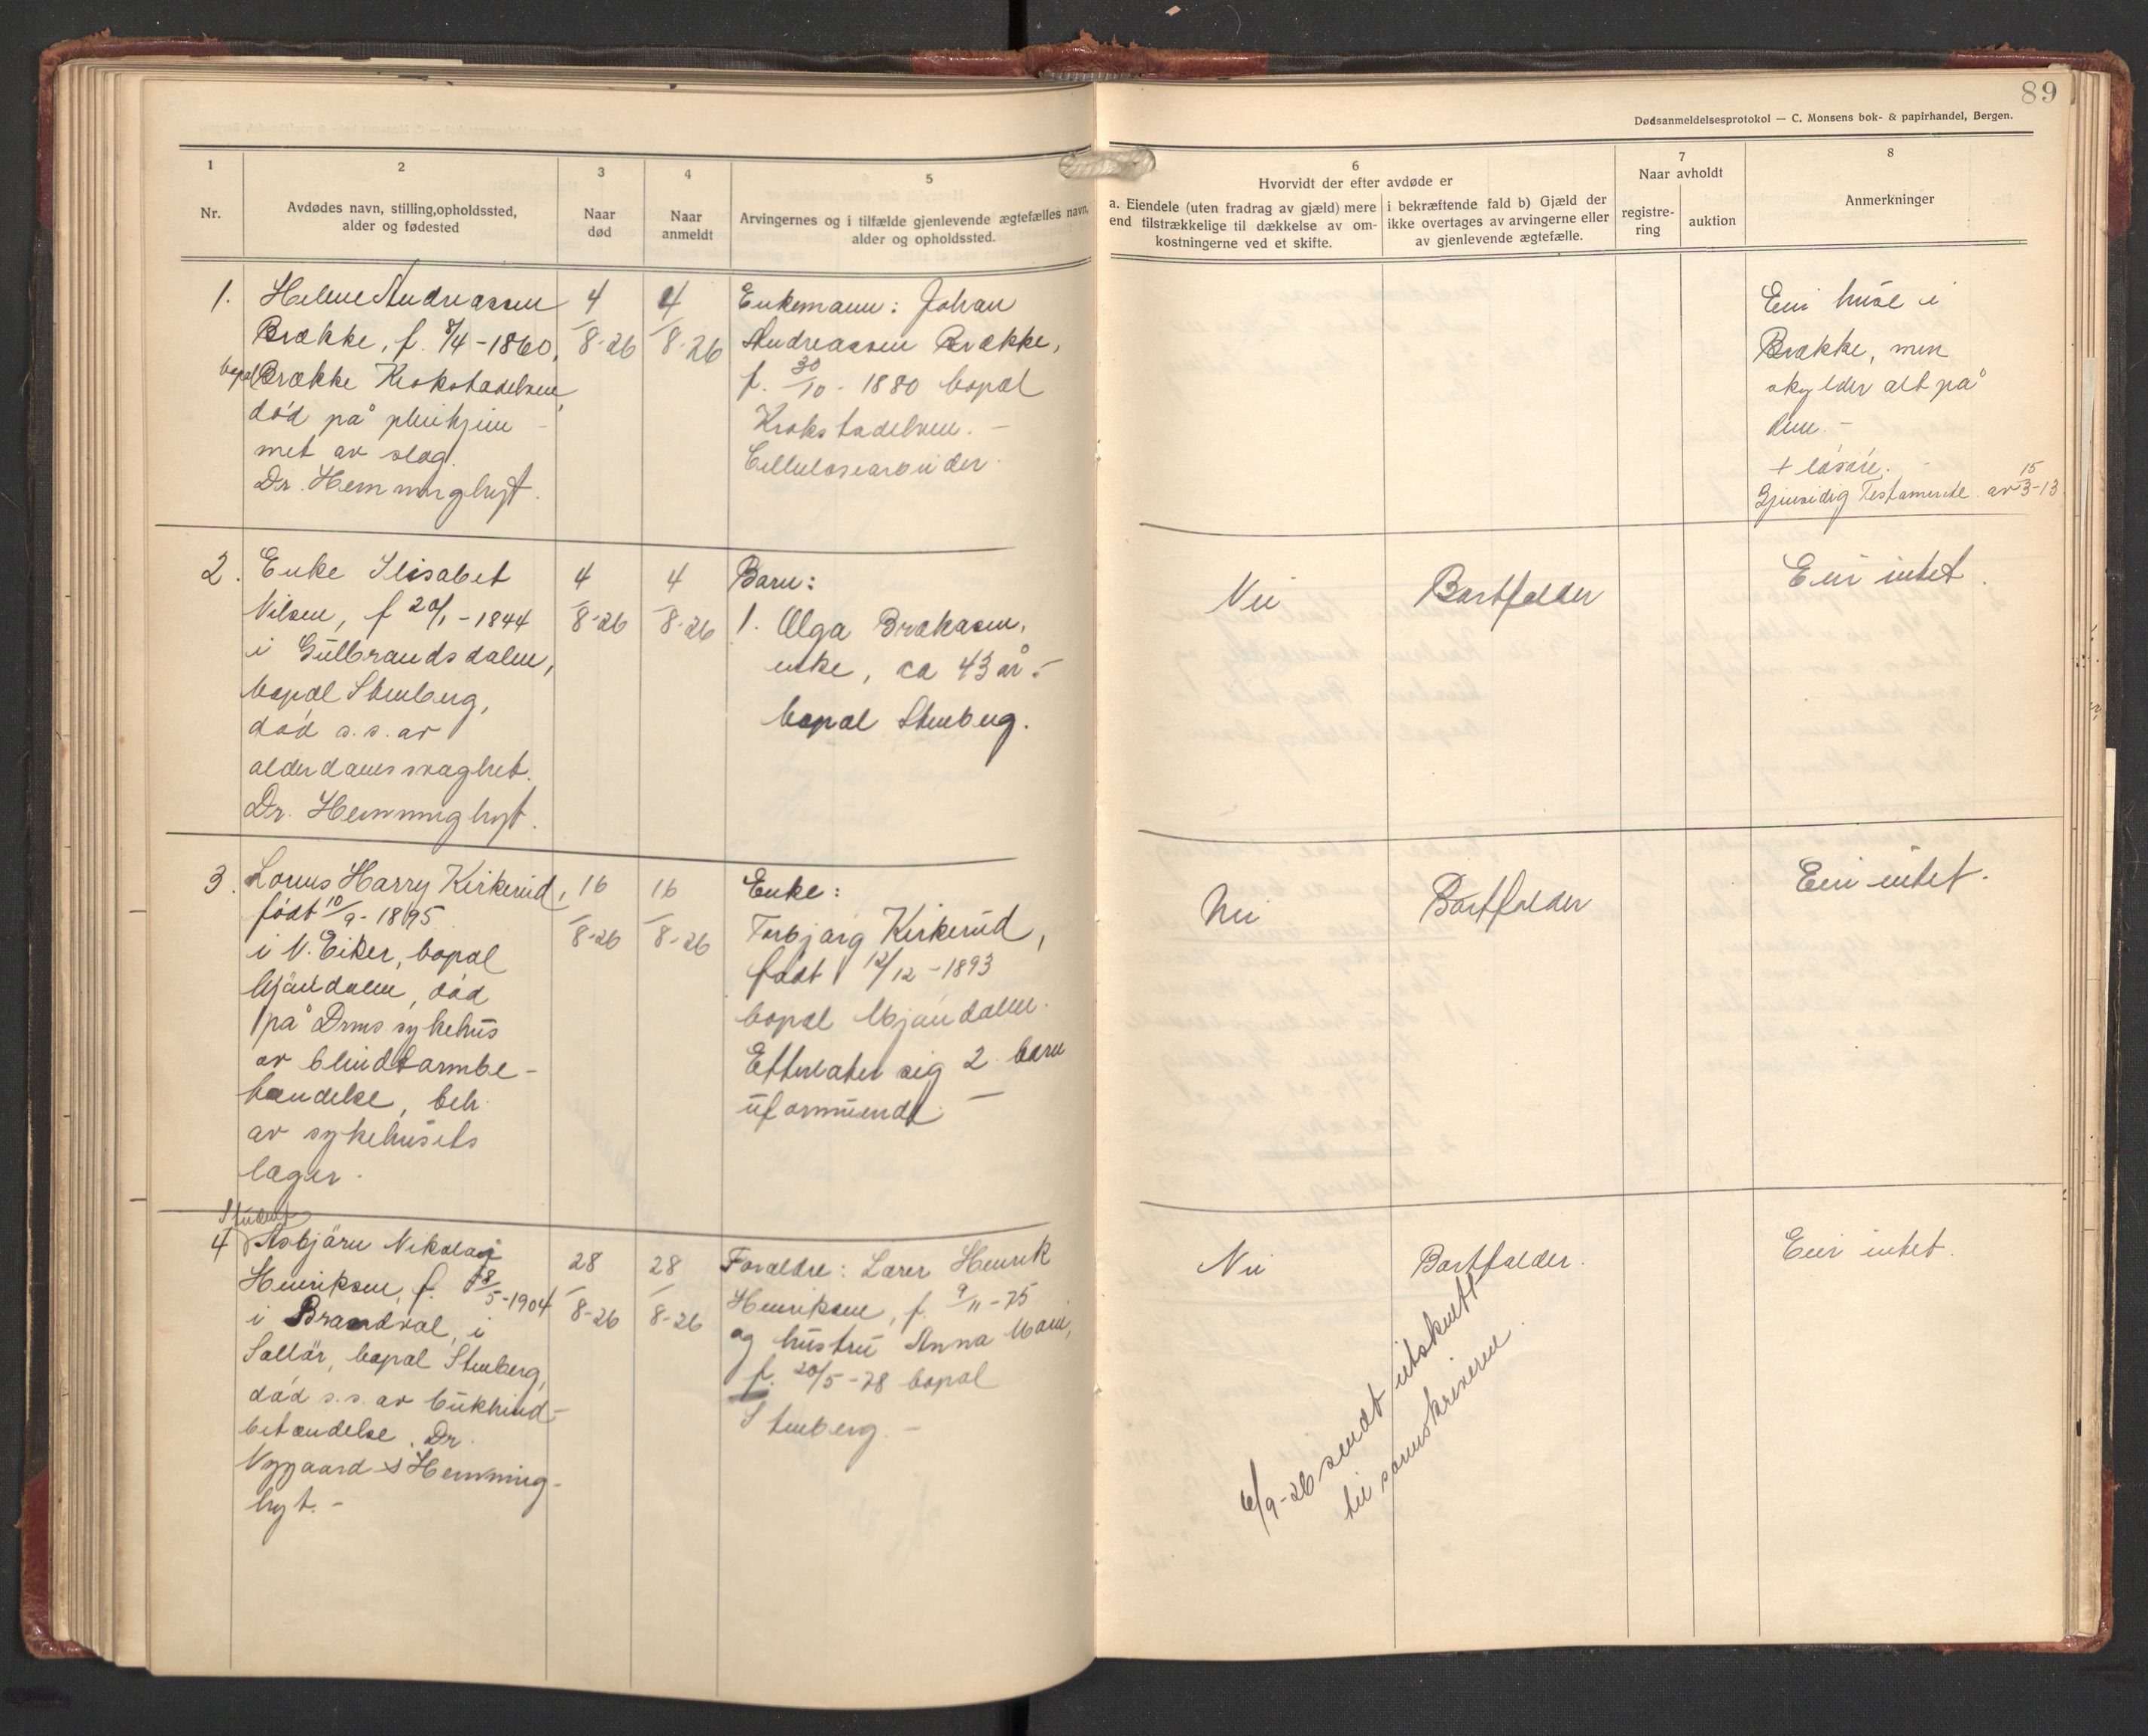 89
Dødsanmeldelsesprotokol — C. Monsens bok- & papirhandel, Bergen.
1
Nr.
2
Avdødes navn, stilling, opholdssted,
alder og fødested
3
Naar
død
4
Naar
anmeldt
5
Arvingernes og i tilfælde gjenlevende ægtefælles navn,
alder og opholdssted.
6
Hvorvidt der efter avdøde er
a. Eiendele (uten fradrag av gjæld) mere
end tilstrækkelige til dækkelse av om-
kostningerne ved et skifte.
i bekræftende fald b) Gjæld der
ikke overtages av arvingerne eller
av gjenlevende ægtefælle.
7
Naar avholdt
registre-
ring
auktion
8
Anmerkninger
1.
Helene Andreassen
Brække, f. 8/4-1860,
bopæl Brække Krokstadelven,
død på pleiehjem-
met av slag.
Dr. Hemminghyt.
4/8-26
4/8-26
Enkemann: Johan
Andreassen Brække,
f. 30/10-1880 bopæl
Krokstadelven. -
Cellulosearbeider.
Eier huse i
Brække, men
skylder alt på
dem. -
+ løsøre. -
Gjensidig Testamente av 15/3-13
2.
Enke Elisabet
Nilsen, f 20/1-1844
i Gulbrandsdalen,
bopæl Stenberg,
død s.s. av
alderdomssvaghet.
Dr. Hemminghyt.
4/8-26
4/8-26
Barn:
1. Olga Brækasen,
enke, ca 43 år. -
bopæl Stenberg.
Nei
Bortfalder
Eier intet.
3.
Harry Kirkerud,
født 10/9-1895
i N. Eiker, bopæl
Mjøndalen, død
på Drms sykehus
av blindtarmbe-
tændelse, beh.
av sykehusets
læger.
16/8-26
16/8-26
Enke:
Torbjørg Kirkerud,
født 12/12-1893
bopæl Mjøndalen.
Etterlater sig 2 barn
uformuende. -
Nei
Bortfalder
Eier intet.
4
Student
Asbjørn Nikolai
Henriksen, f. 18/5-1904
i Brandval, i
Solør, bopæl Stenberg,
død s.s. av bukhind-
betændelse. Dr.
Nygaard & Hemming-
hyt. -
28/8-26
28/8-26
Forældre: Lærer Henrik
Henriksen, f. 9/11-75
og hustru Anna Marie,
f. 20/5-78 bopæl
Stenberg. -
Nei
Bortfalder.
Eier intet.
6/9-26 sendt utskrift
til sorenskriveren.